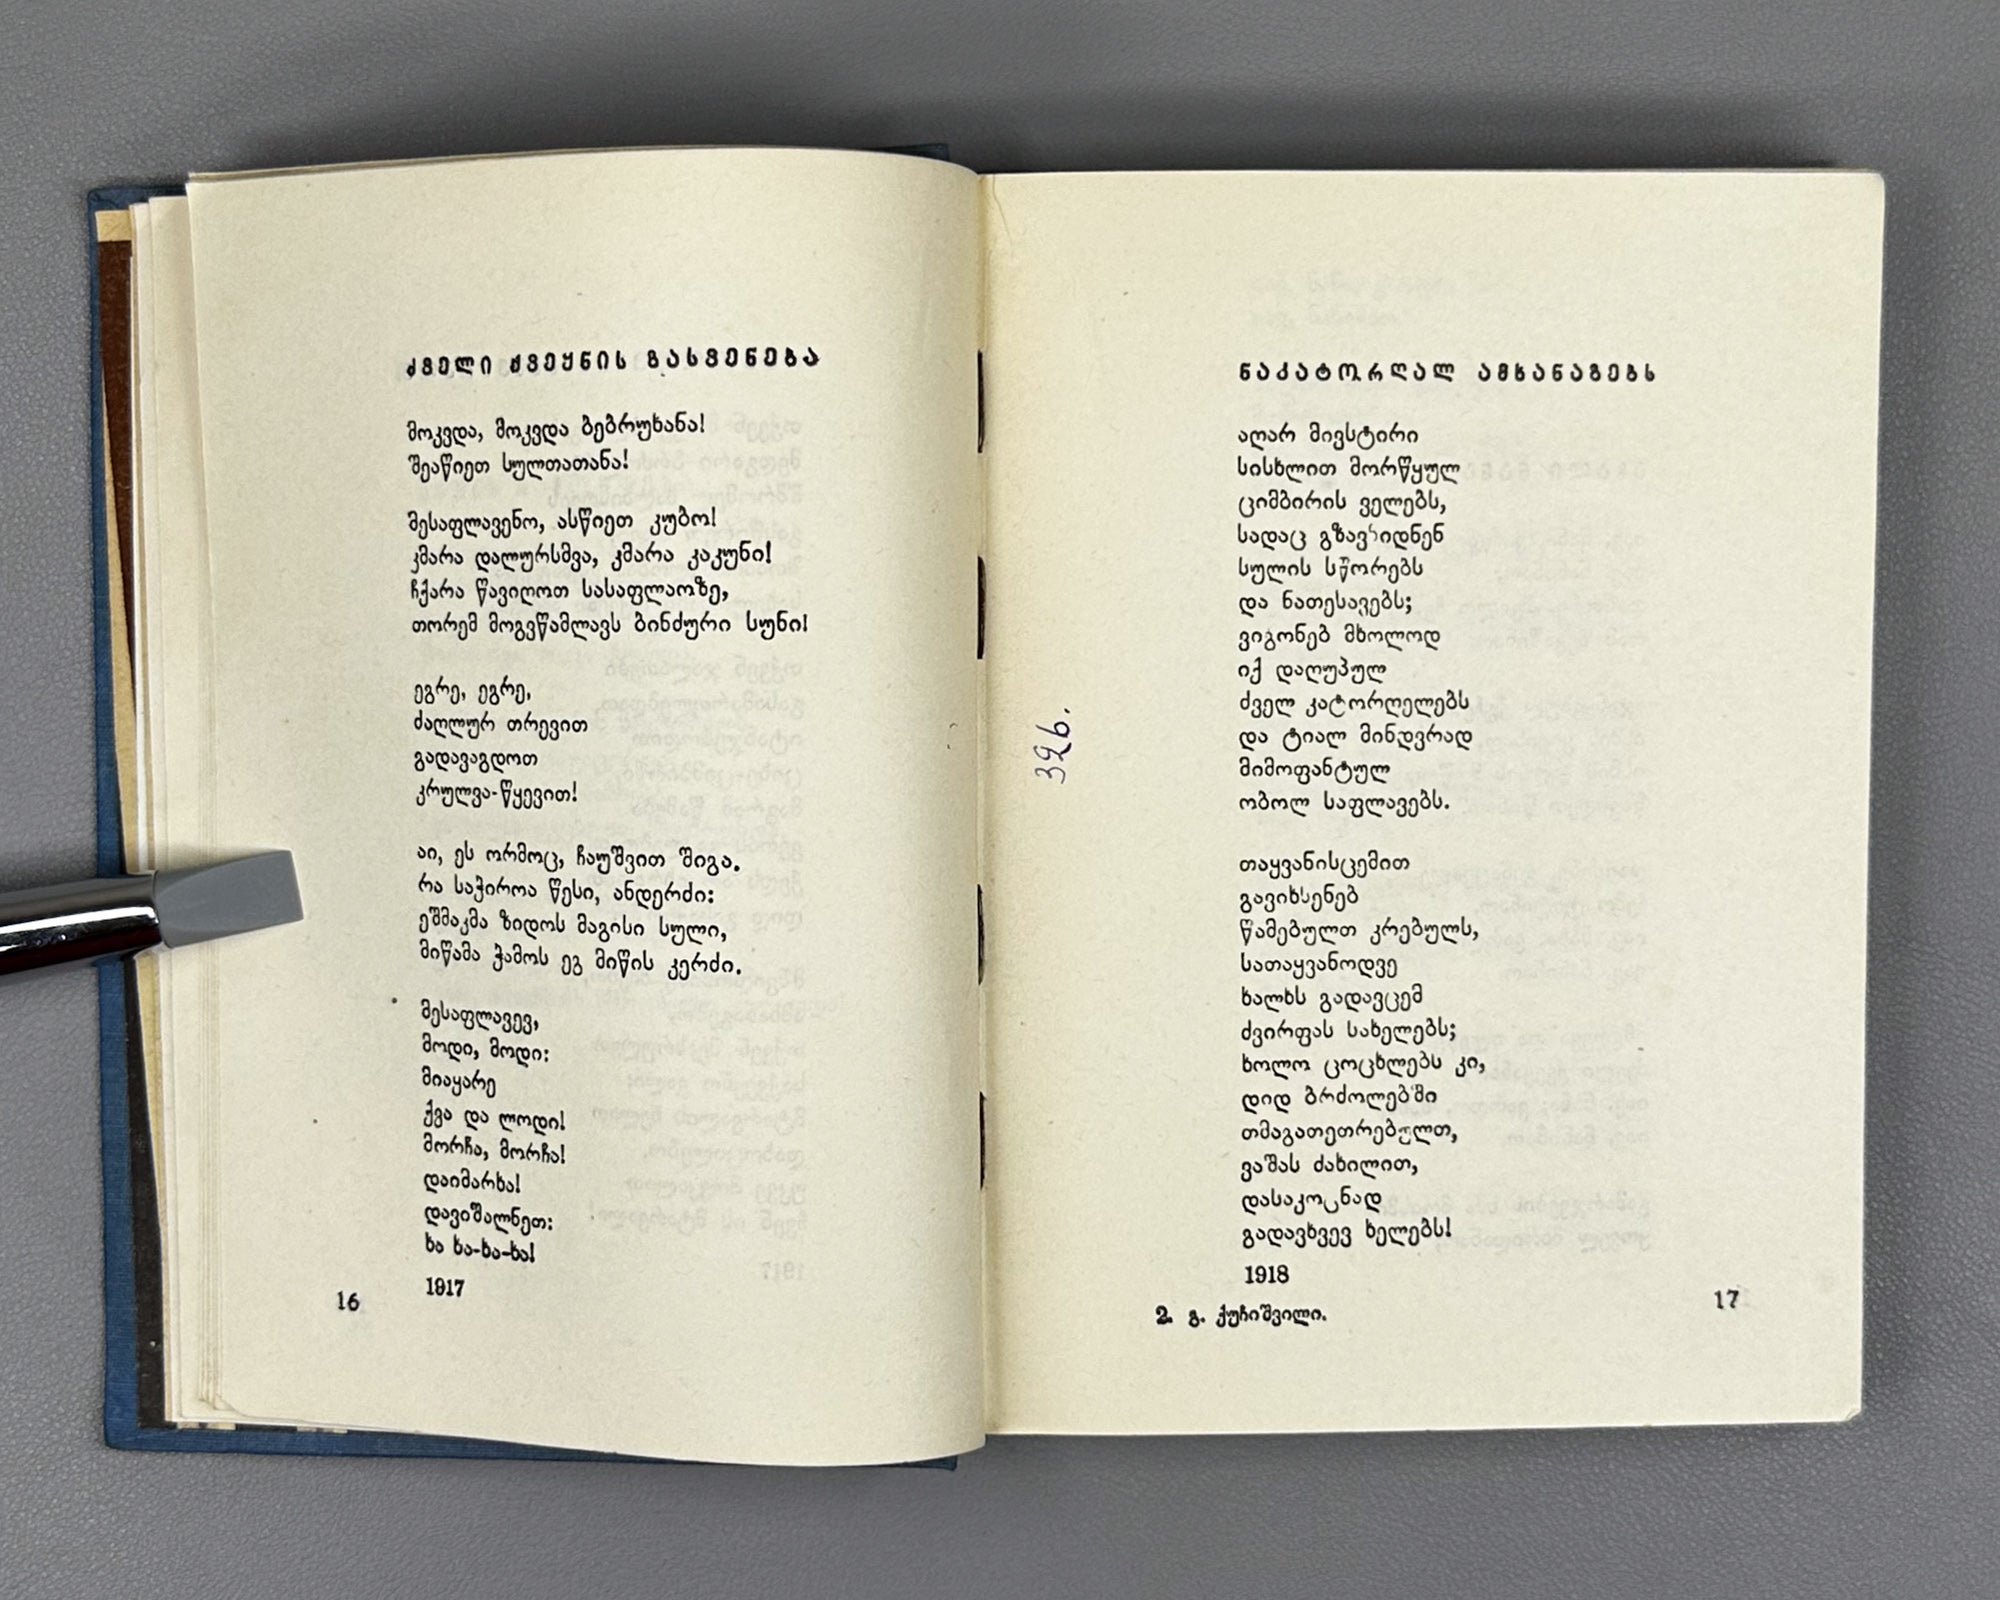 ძველი ქვეყნის გასვენება
მოკვდა, მოკვდა ბებრუხანა!
შეაწიეთ სულთათანა!
მესაფლავენო, ასწიეთ კუბო!
კმარა დალურსმვა, კმარა კაკუნი!
ჩქარა წავიღოთ სასაფლაოზე,
თორემ მოგვწამლავს ბინძური სუნი!
ეგრე, ეგრე,
ძაღლურ თრევით
გადავაგდოთ
კრულვა-წყევით!
აი, ეს ორმოც, ჩაუშვით შიგა.
რა საჭიროა წესი, ანდერძი:
ეშმაკმა ზიდოს მაგისი სული,
მიწამა ჭამოს ეგ მიწის კერძი.
მესაფლავევ,
მოდი, მოდი:
მიაყარე
ქვა და ლოდი!
მორჩა, მორჩა!
დაიმარხა!
დავიშალნეთ:
ხა ხა-ხა-ხა!
1917
16
ნაკატორღალ ამხანაგებს
აღარ მივსტირი
სისხლით მორწყულ
ციმბირის ველებს,
სადაც გზავნიდნენ
სულის სწორებს
და ნათესავებს;
ვიგონებ მხოლოდ
იქ დაღუპულ
ძველ კატორღელებს
და ტიალ მინდვრად
მიმოფანტულ
ობოლ საფლავებს.
თაყვანისცემით
გავიხსენებ
წამებულთ კრებულს,
სათაყვანოდვე
ხალხს გადავცემ
ძვირფას სახელებს;
ხოლო ცოცხლებს კი,
დიდ ბრძოლებში
თმაგათეთრებულთ,
ვაშას ძახილით,
დასაკოცნად
გადავხვევ ხელებს!
1918
2. გ. ქუჩიშვილი.
17